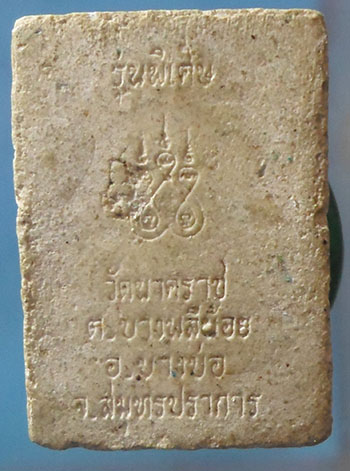 รุ่นพิเศษ
วัดนาคราช
ต.บางพลีน้อย
อ.บางบ่อ
จ.สมุทรปราการ